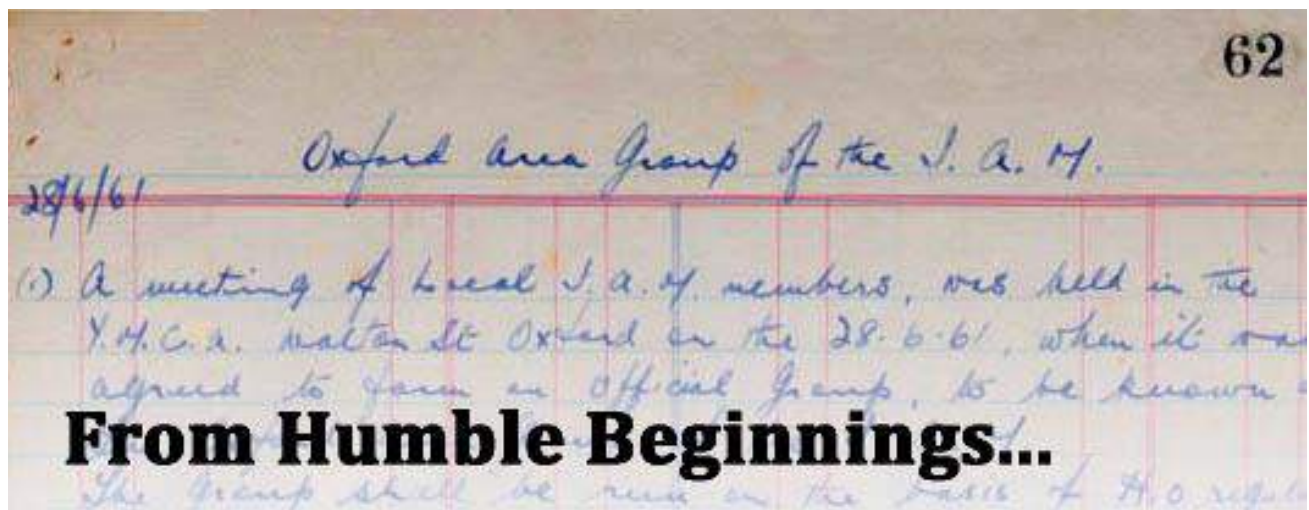 62
Oxford Area Group of the I. A. M.
28/6/61
(1) A meeting of Local I. A. M. members, was held in the
Y.M.C.A. Walton St Oxford on the 28.6.61, when it was
agreed to form an Official Group, to be known
From Humble Beginnings...
The Group shall be run on the basis of H.O